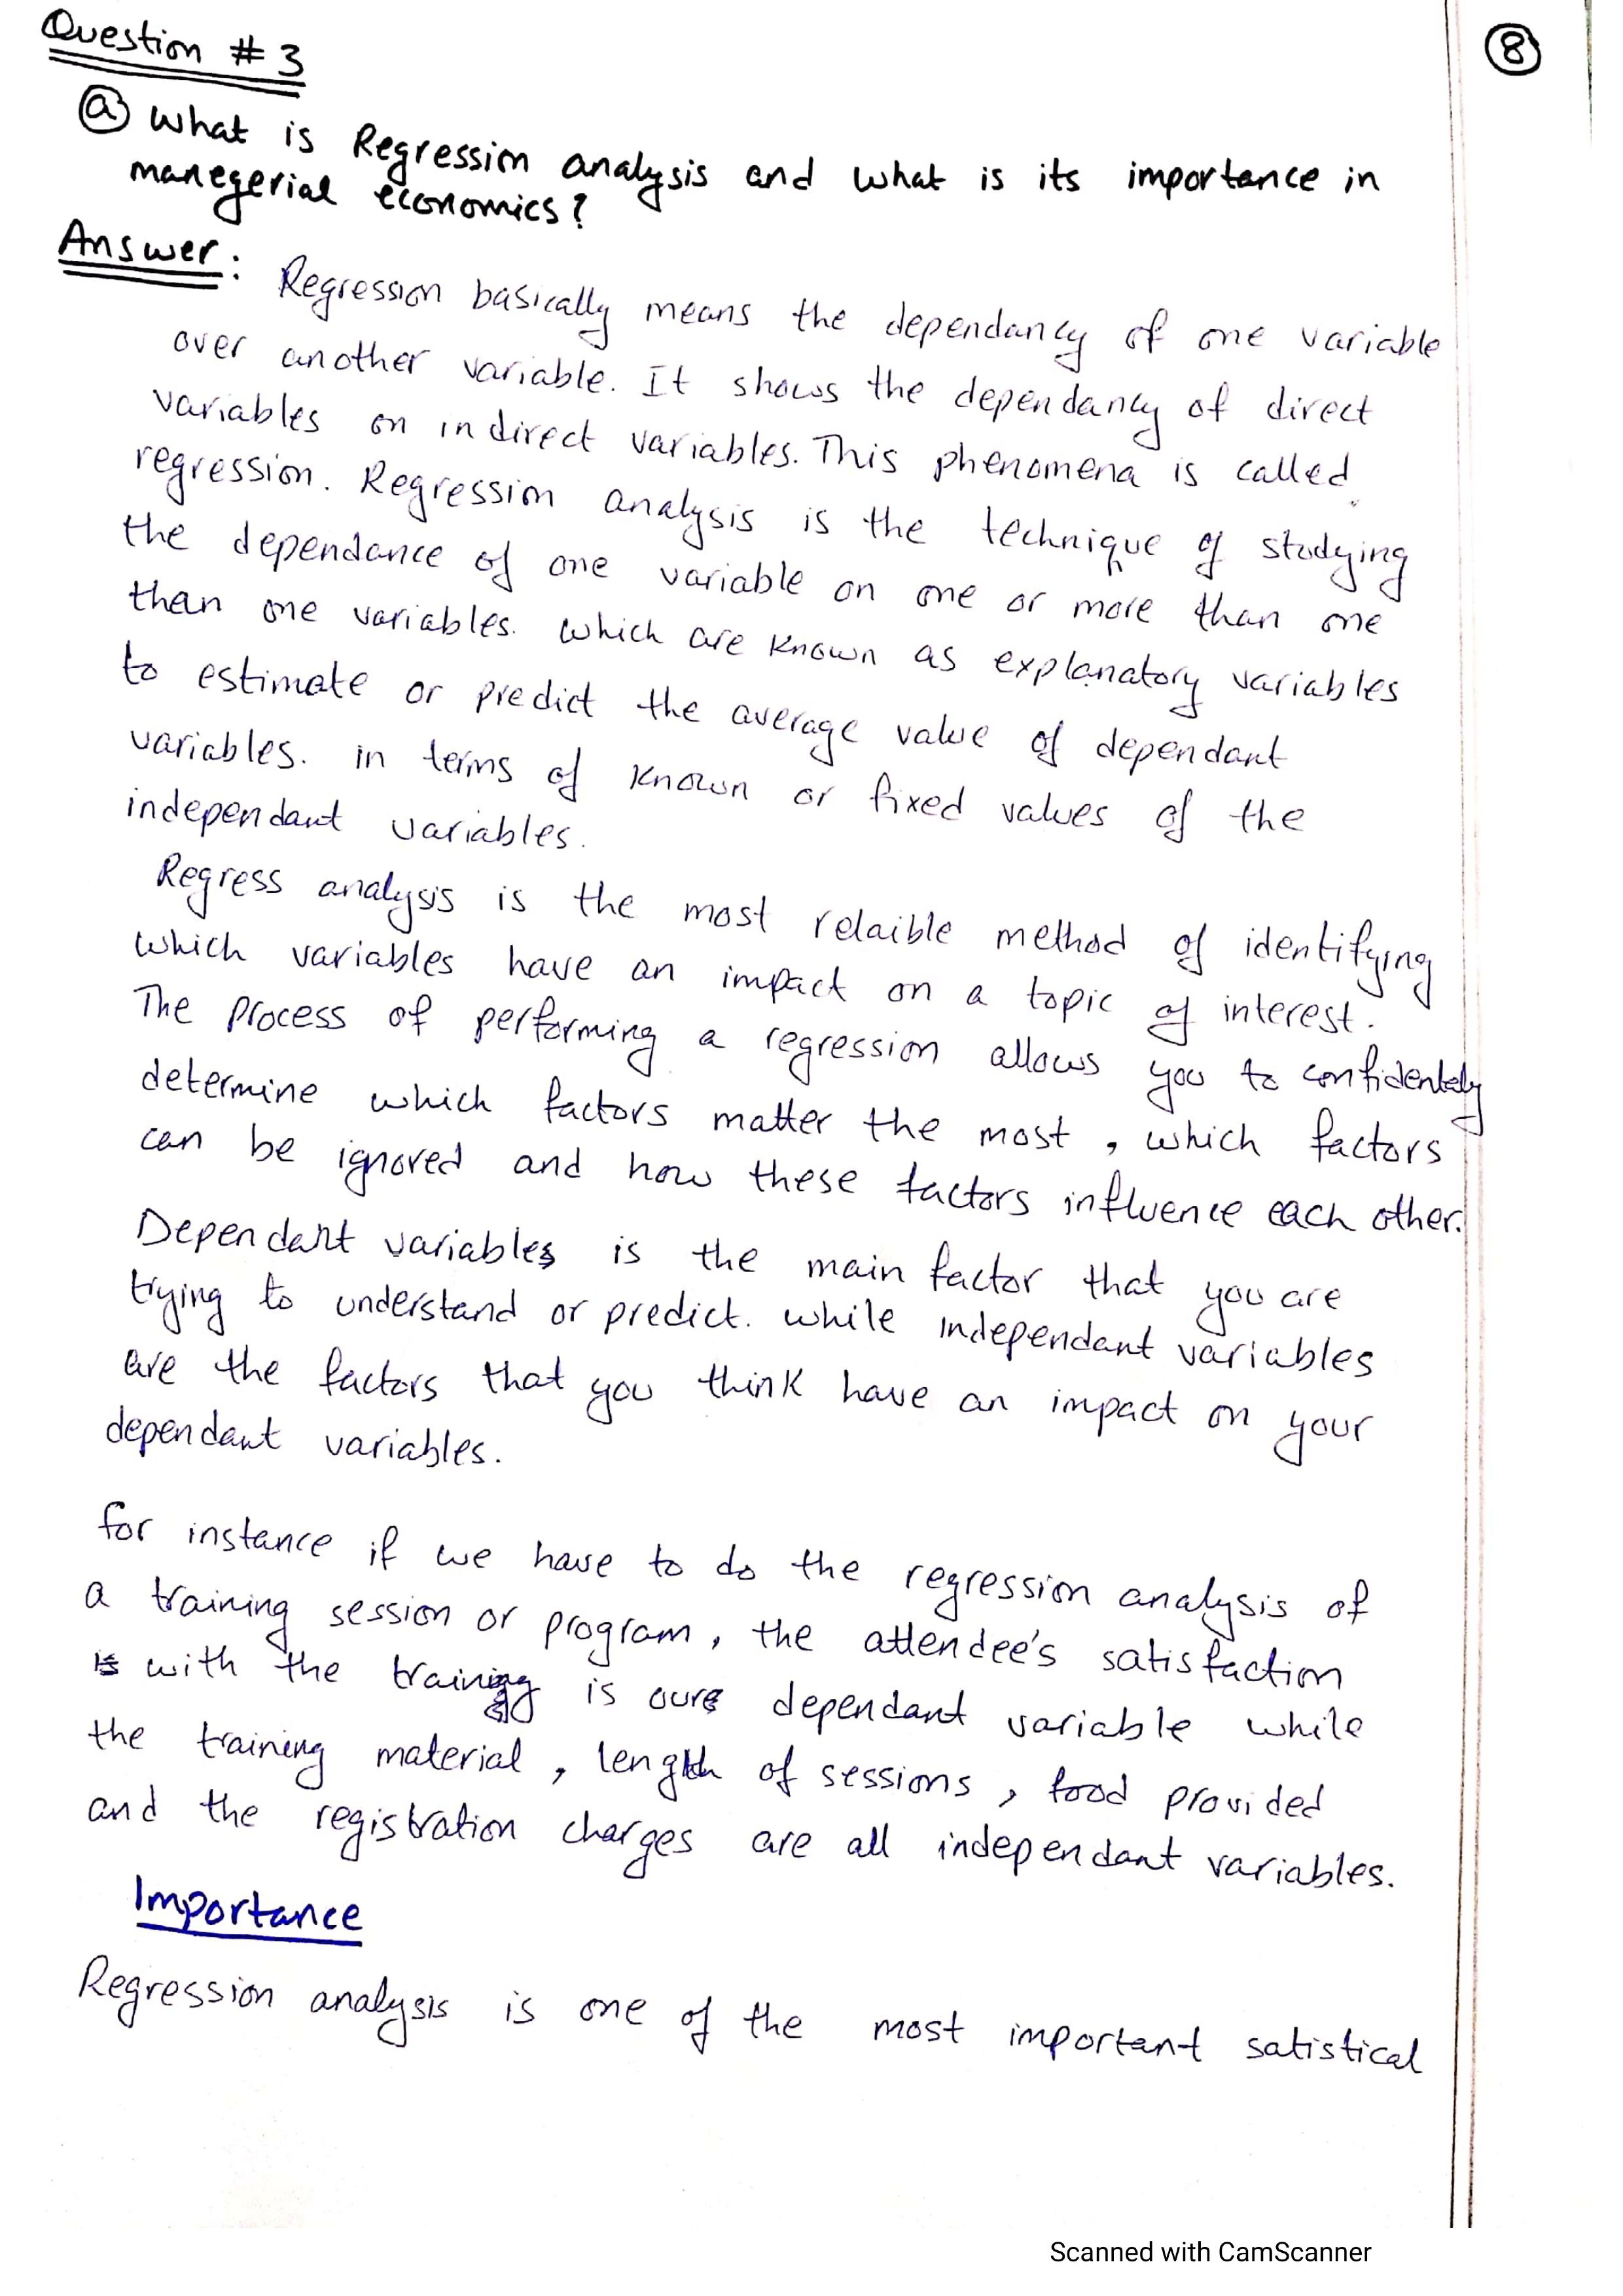 Question # 3
⑧
ⓐ What is Regression analysis and what is its importance in
manegerial economics?
Answer: Regression basically means the dependancy of one variable
over another variable. It shows the dependancy of direct
variables on indirect variables. This phenomena is called
regression. Regression analysis is the technique of studying
the dependance of one variable on one or more than one
than one variables. which are known as explanatory variables
to estimate or predict the average value of dependant
variables. in terms of known or fixed values of the
independant variables.
Regress analysis is the most relaible method of identifying
which variables have an impact on a topic of interest.
The process of performing a regression allows you to confidentely
determine which factors matter the most, which factors
can be ignored and how these factors influence each other.
Dependant variables is the main factor that you are
trying to understand or predict. while independant variables
are the factors that you think have an impact on your
dependant variables.
for instance if we have to do the regression analysis of
a training session or program, the attendee's satisfaction
with the training is our dependant variable while
the training material, length of sessions, food provided
and the registration charges are all independant variables.
Importance
Regression analysis is one of the most important satistical
Scanned with CamScanner